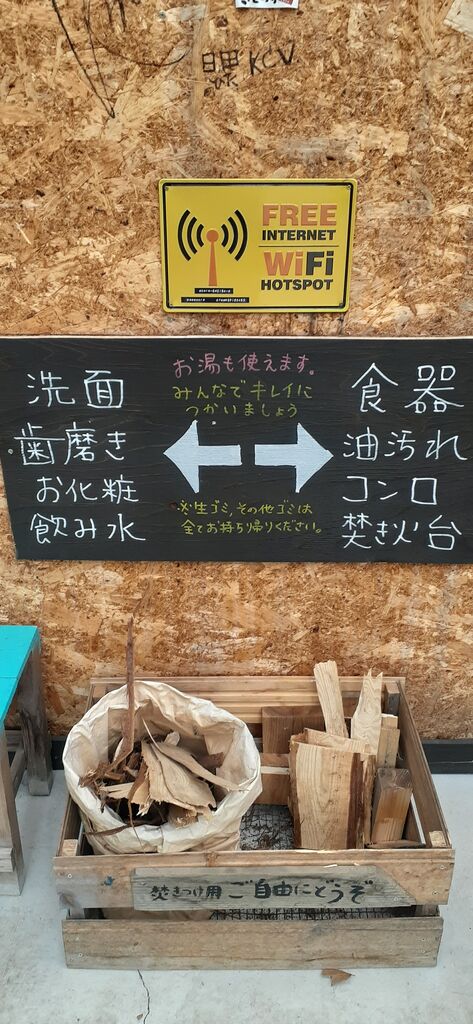 KCV
FREE
INTERNET
WiFi
HOTSPOT
お湯も使えます。
みんなでキレイに
つかいましょう
洗面
歯磨き
お化粧
飲み水
食器
油汚れ
コンロ
焚き火台
※生ゴミ、その他ゴミは
全てお持ち帰りください。
焚きつけ用 ご自由にどうぞ